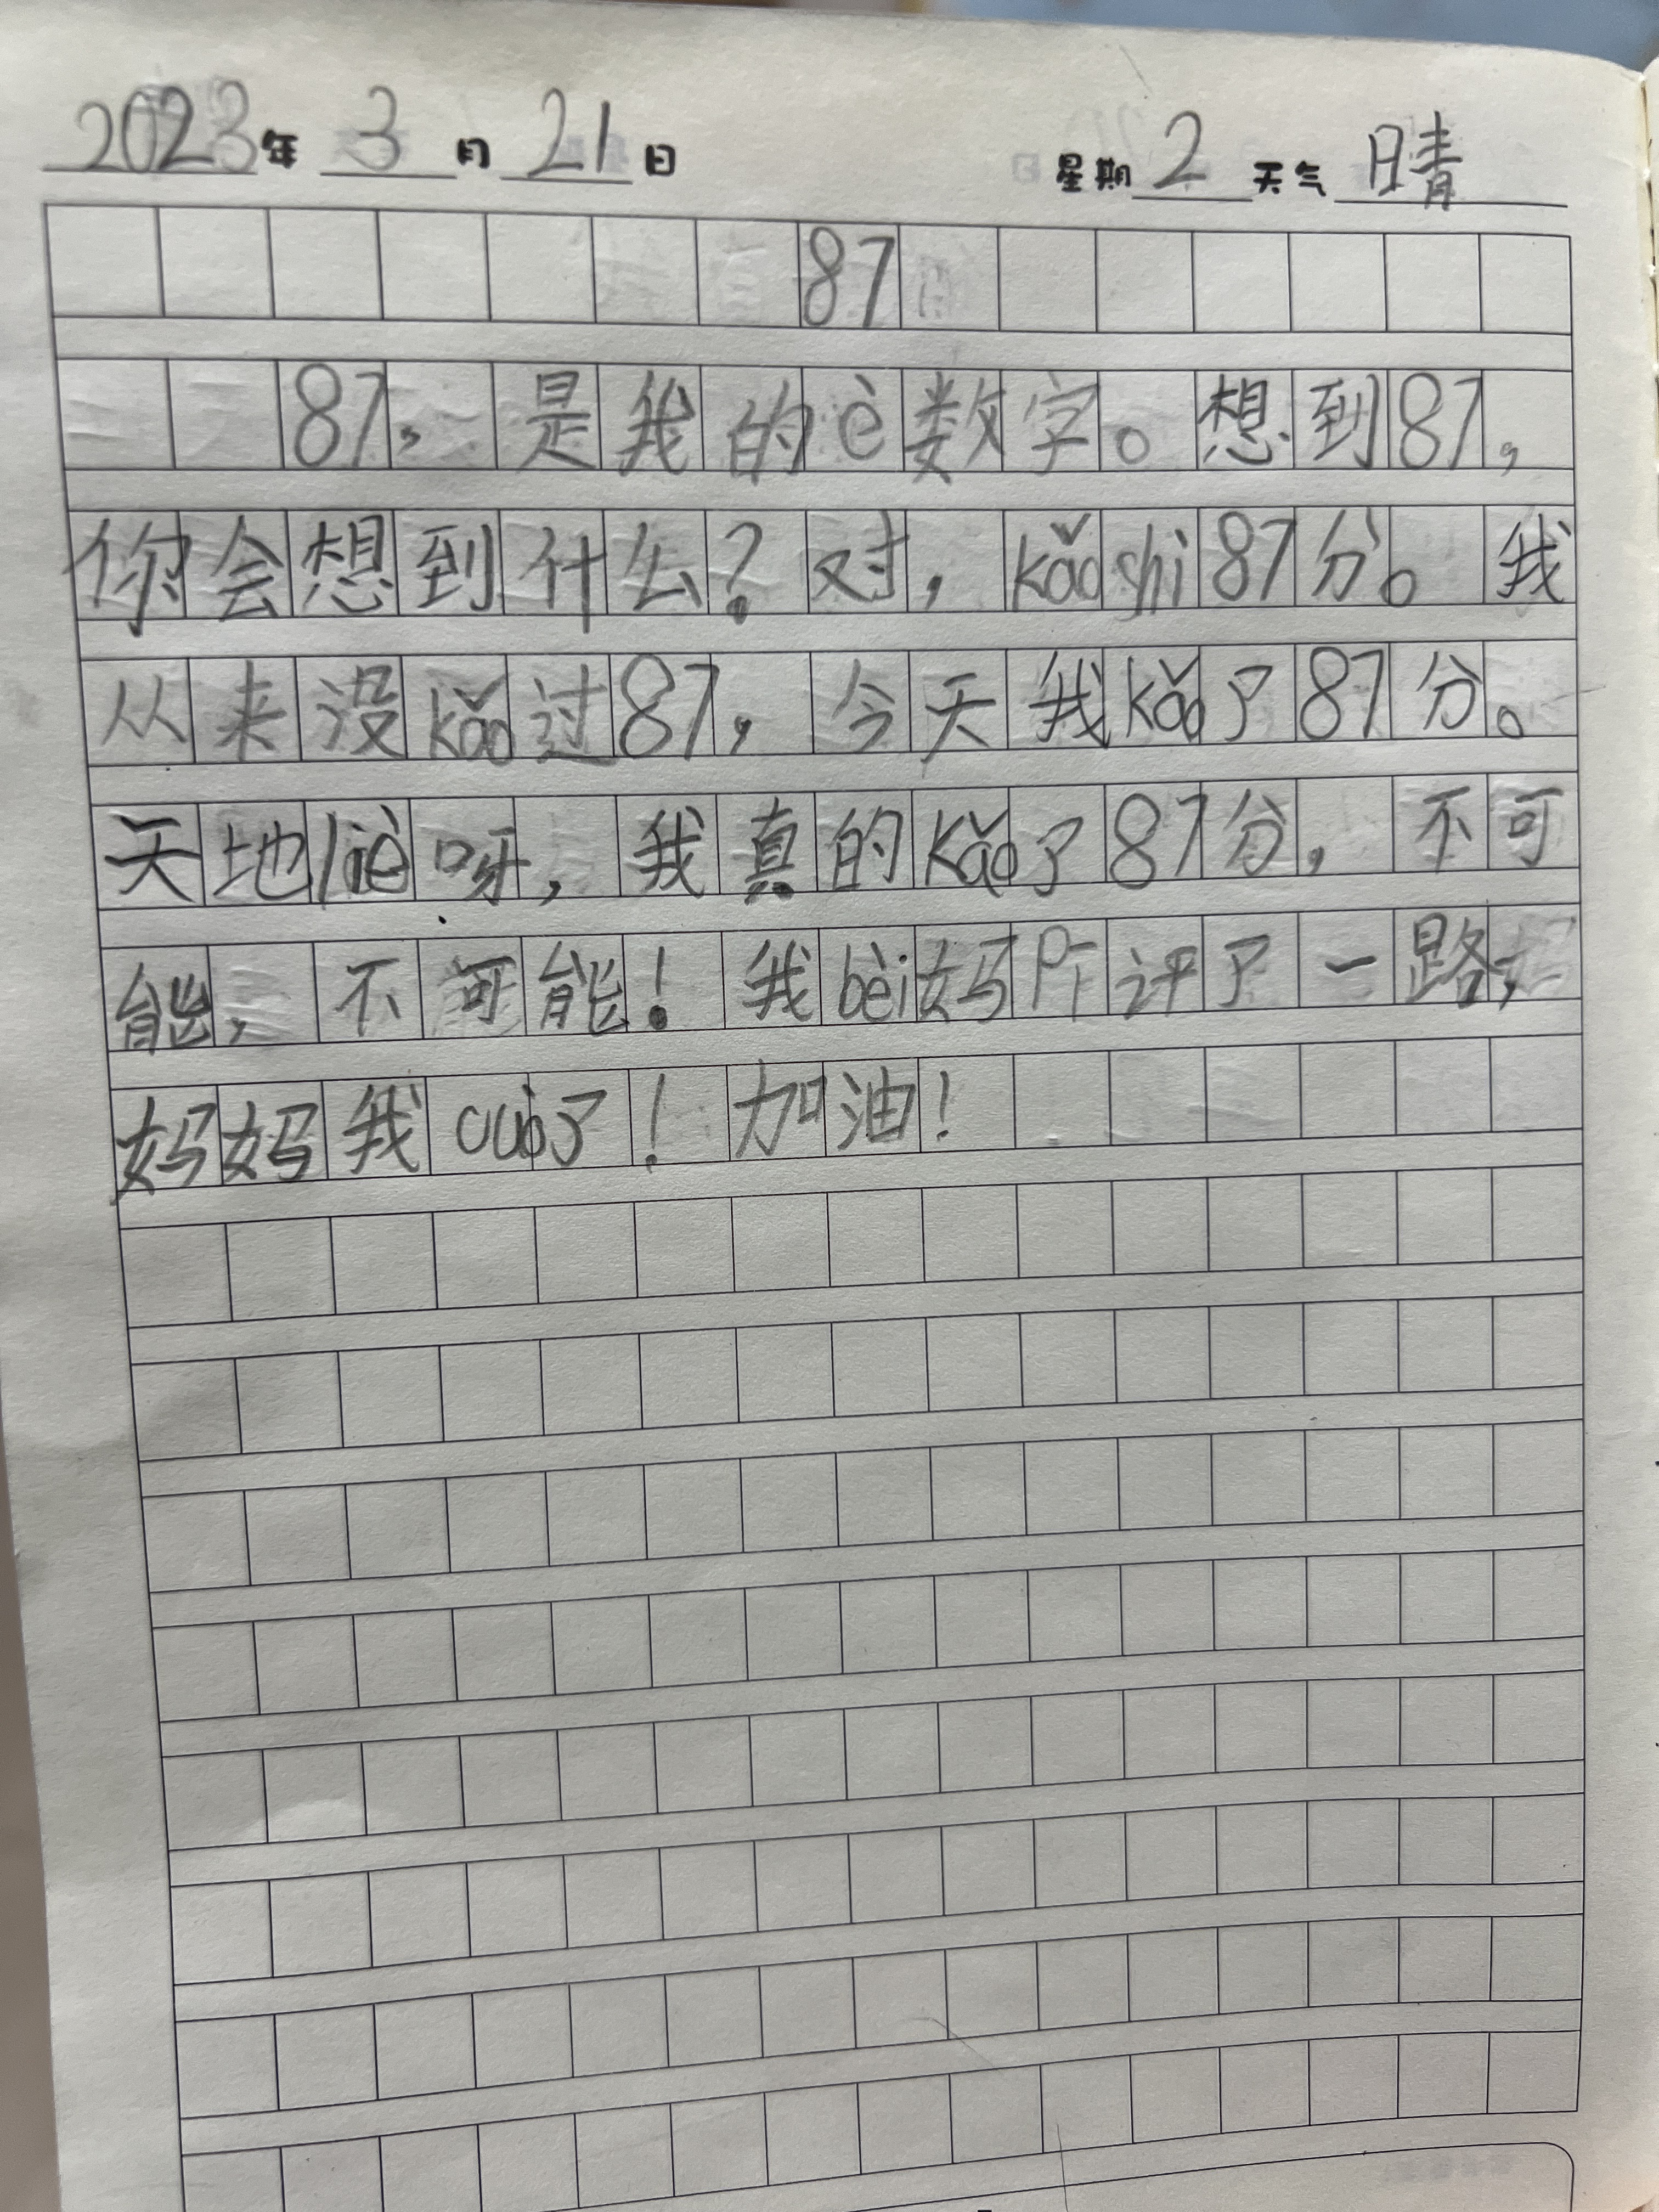 2023年 3 月 21 日 星期 2 天气 晴
87
87,是我的è数字。想到87,
你会想到什么?对,kǎoshi87分。我
从来没kǎo过87,今天我kǎo了87分。
天地liè呀,我真的kǎo了87分,不可
能,不可能!我bèi妈 评了一路,
妈妈我cuò了!加油!